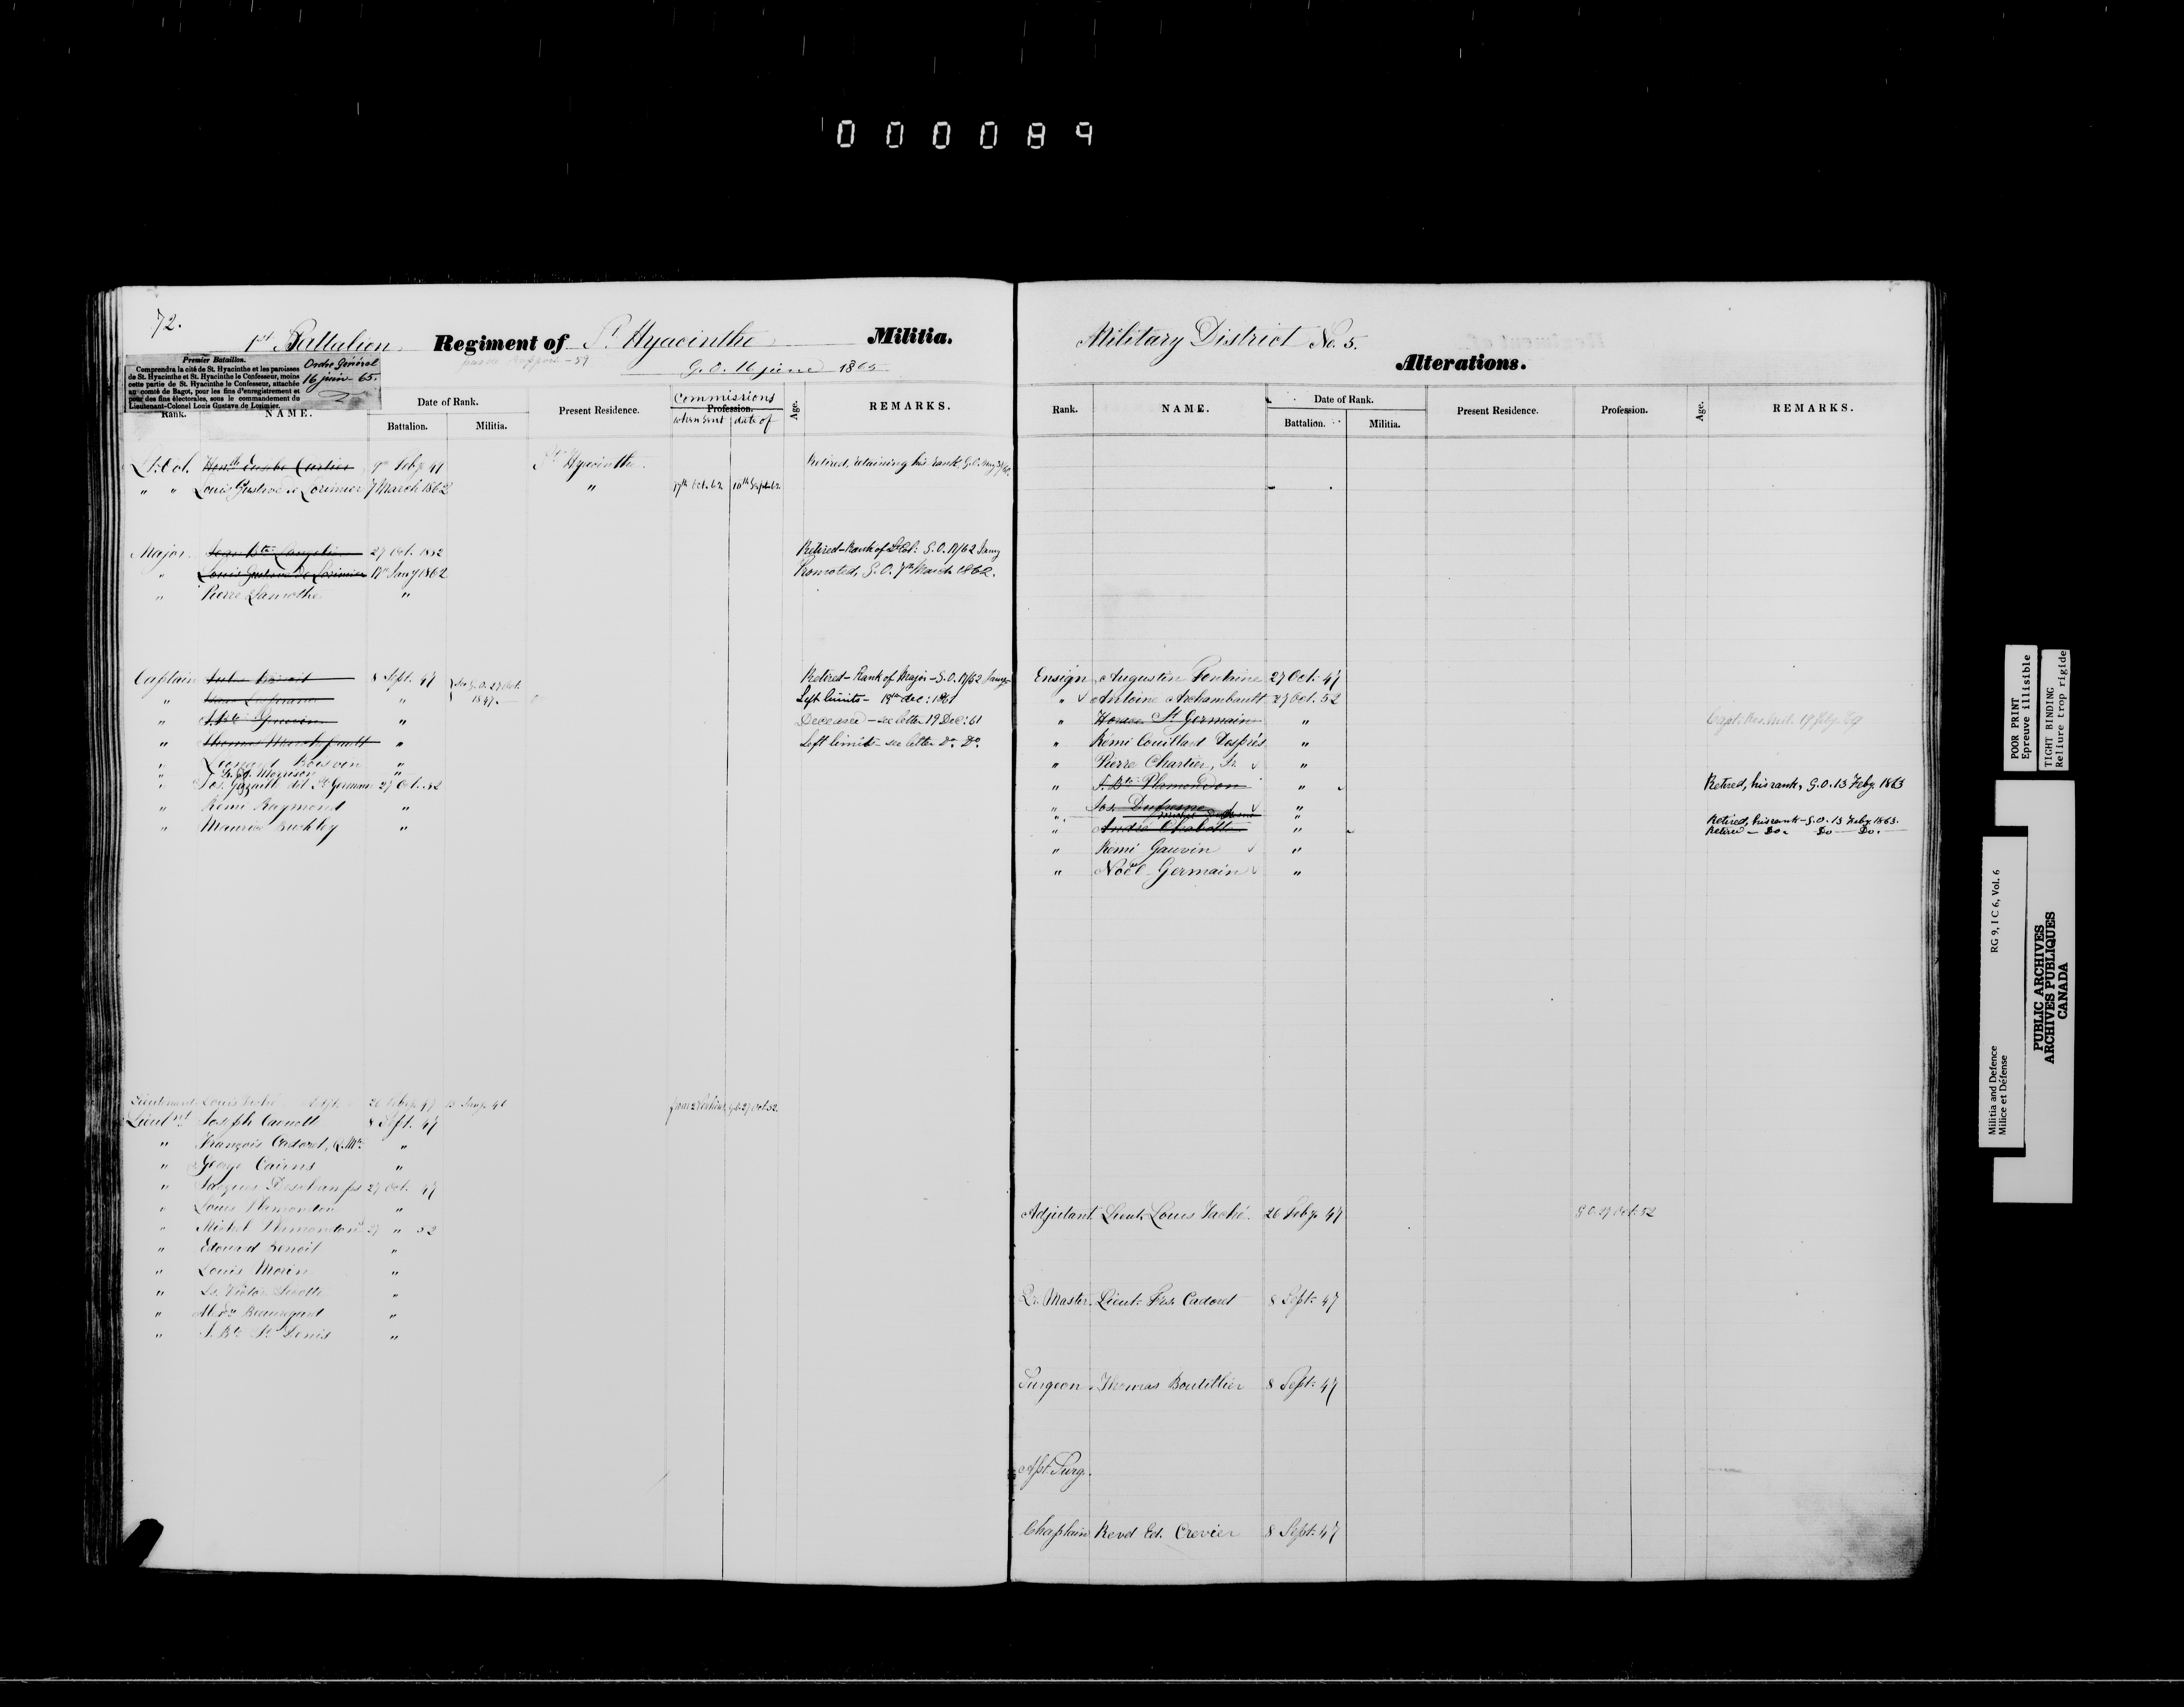 000089
72.
1st Battalion Regiment of St Hyacinthe Militia.
G.O. 16 june 1865
Premier Bataillon.
Comprendra la cité de St. Hyacinthe et les paroisses
de St. Hyacinthe et St. Hyacinthe le Confesseur, moins
cette partie de St. Hyacinthe le Confesseur, attachée
au comté de Bagot, pour les fins d'enregistrement et
pour des fins électorales, sous le commandement du
Lieutenant-Colonel Louis Gustave de Lorimier.
Ordre Général
16 juin 65.
Rank. NAME. Date of Rank. Battalion. Militia. Present Residence. Commissions Profession. when sent date of Age. REMARKS.
Lt. Col. Honble Eusèbe Cartier 9th Feby 47 St Hyacinthe. Retired, retaining his rank, G.O.
" " Louis Gustave de Lorimier 7 March 1862 " 17th Oct. 62 10th Sept. 62
Major. Jean Bte 27 Oct. 1852 Retired - Rank of Lt Col: G.O. 17/62 Jany
" Louis Gustave de Lorimier 17th Jany 1862 Promoted, G.O. 7th March 1862.
" Pierre Lamothe "
Captain Jules 8 Sept. 47 See G.O. 27 Oct. 1847. Retired - Rank of Major - G.O. 17/62 Jany
" " Left limits - 19th dec: 1861
" J. Bte " Deceased - see letter 19 Dec: 61
" Thomas " Left limits - see letter Do. Do.
" Leonard Boisvin "
" Morrison "
" Jos. Gazaille dit St Germain 27 Oct. 52
" Remi Raymond "
" Maurice Buckley "
Lieutenant Louis Taché 26 Feby 47 G.O. 27 Oct. 52.
Lieutnt. Joseph 8 Sept. 47
" François Cadoret, Q. Mr. "
" George Cairns "
" Jacques Deschamps 27 Oct. 47
" Louis Plamondon "
" Michel Plamondon 27 " 52
" Edouard Benoit "
" Louis Morin "
" Ls. Victor Sicotte "
" Alexdre Beauregard "
" J. Bte St Denis "
Military District No. 5.
Alterations.
Rank. NAME. Date of Rank. Battalion. Militia. Present Residence. Profession. Age. REMARKS.
Ensign Augustin Fontaine 27 Oct. 47
" Antoine Archambault 27 Oct. 52
" Horace St Germain "
" Rémi Couillard Després "
" Pierre Chartier, Jr. "
" J. Bte Plamondon " Retired, his rank, G.O. 13 Feby. 1863
" Jos. Dufresne "
" " Retired, his rank - G.O. 13 Feby. 1863.
" André Chabott " Retired - Do. Do - Do.
" Rémi Gauvin "
" Noël Germain "
Adjutant. Lieut. Louis Taché. 26 Feby. 47 G.O. 27 Oct. 52
Qr. Master. Lieut. Frs. Cadoret 8 Sept. 47
Surgeon. Thomas Boutillier 8 Sept. 47
Asst. Surg.
Chaplain Revd Ed. Crevier 8 Sept. 47
POOR PRINT
Epreuve illisible
TIGHT BINDING
Reliure trop rigide
Militia and Defence RG 9, I C 6, Vol. 6
Milice et Défense
PUBLIC ARCHIVES
ARCHIVES PUBLIQUES
CANADA